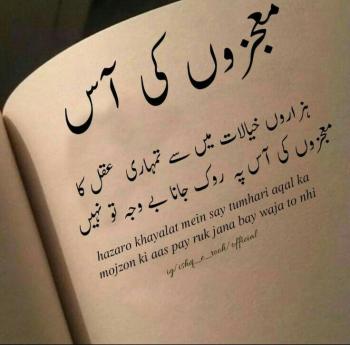 معجزوں کی آس
ہزاروں خیالات میں سے تمہاری عقل کا
معجزوں کی آس پہ روک جانا بے وجہ تو نہیں
hazaro khayalat mein say tumhari aqal ka
mojzon ki aas pay ruk jana bay waja to nhi
ig/ishq_e_rooh/official